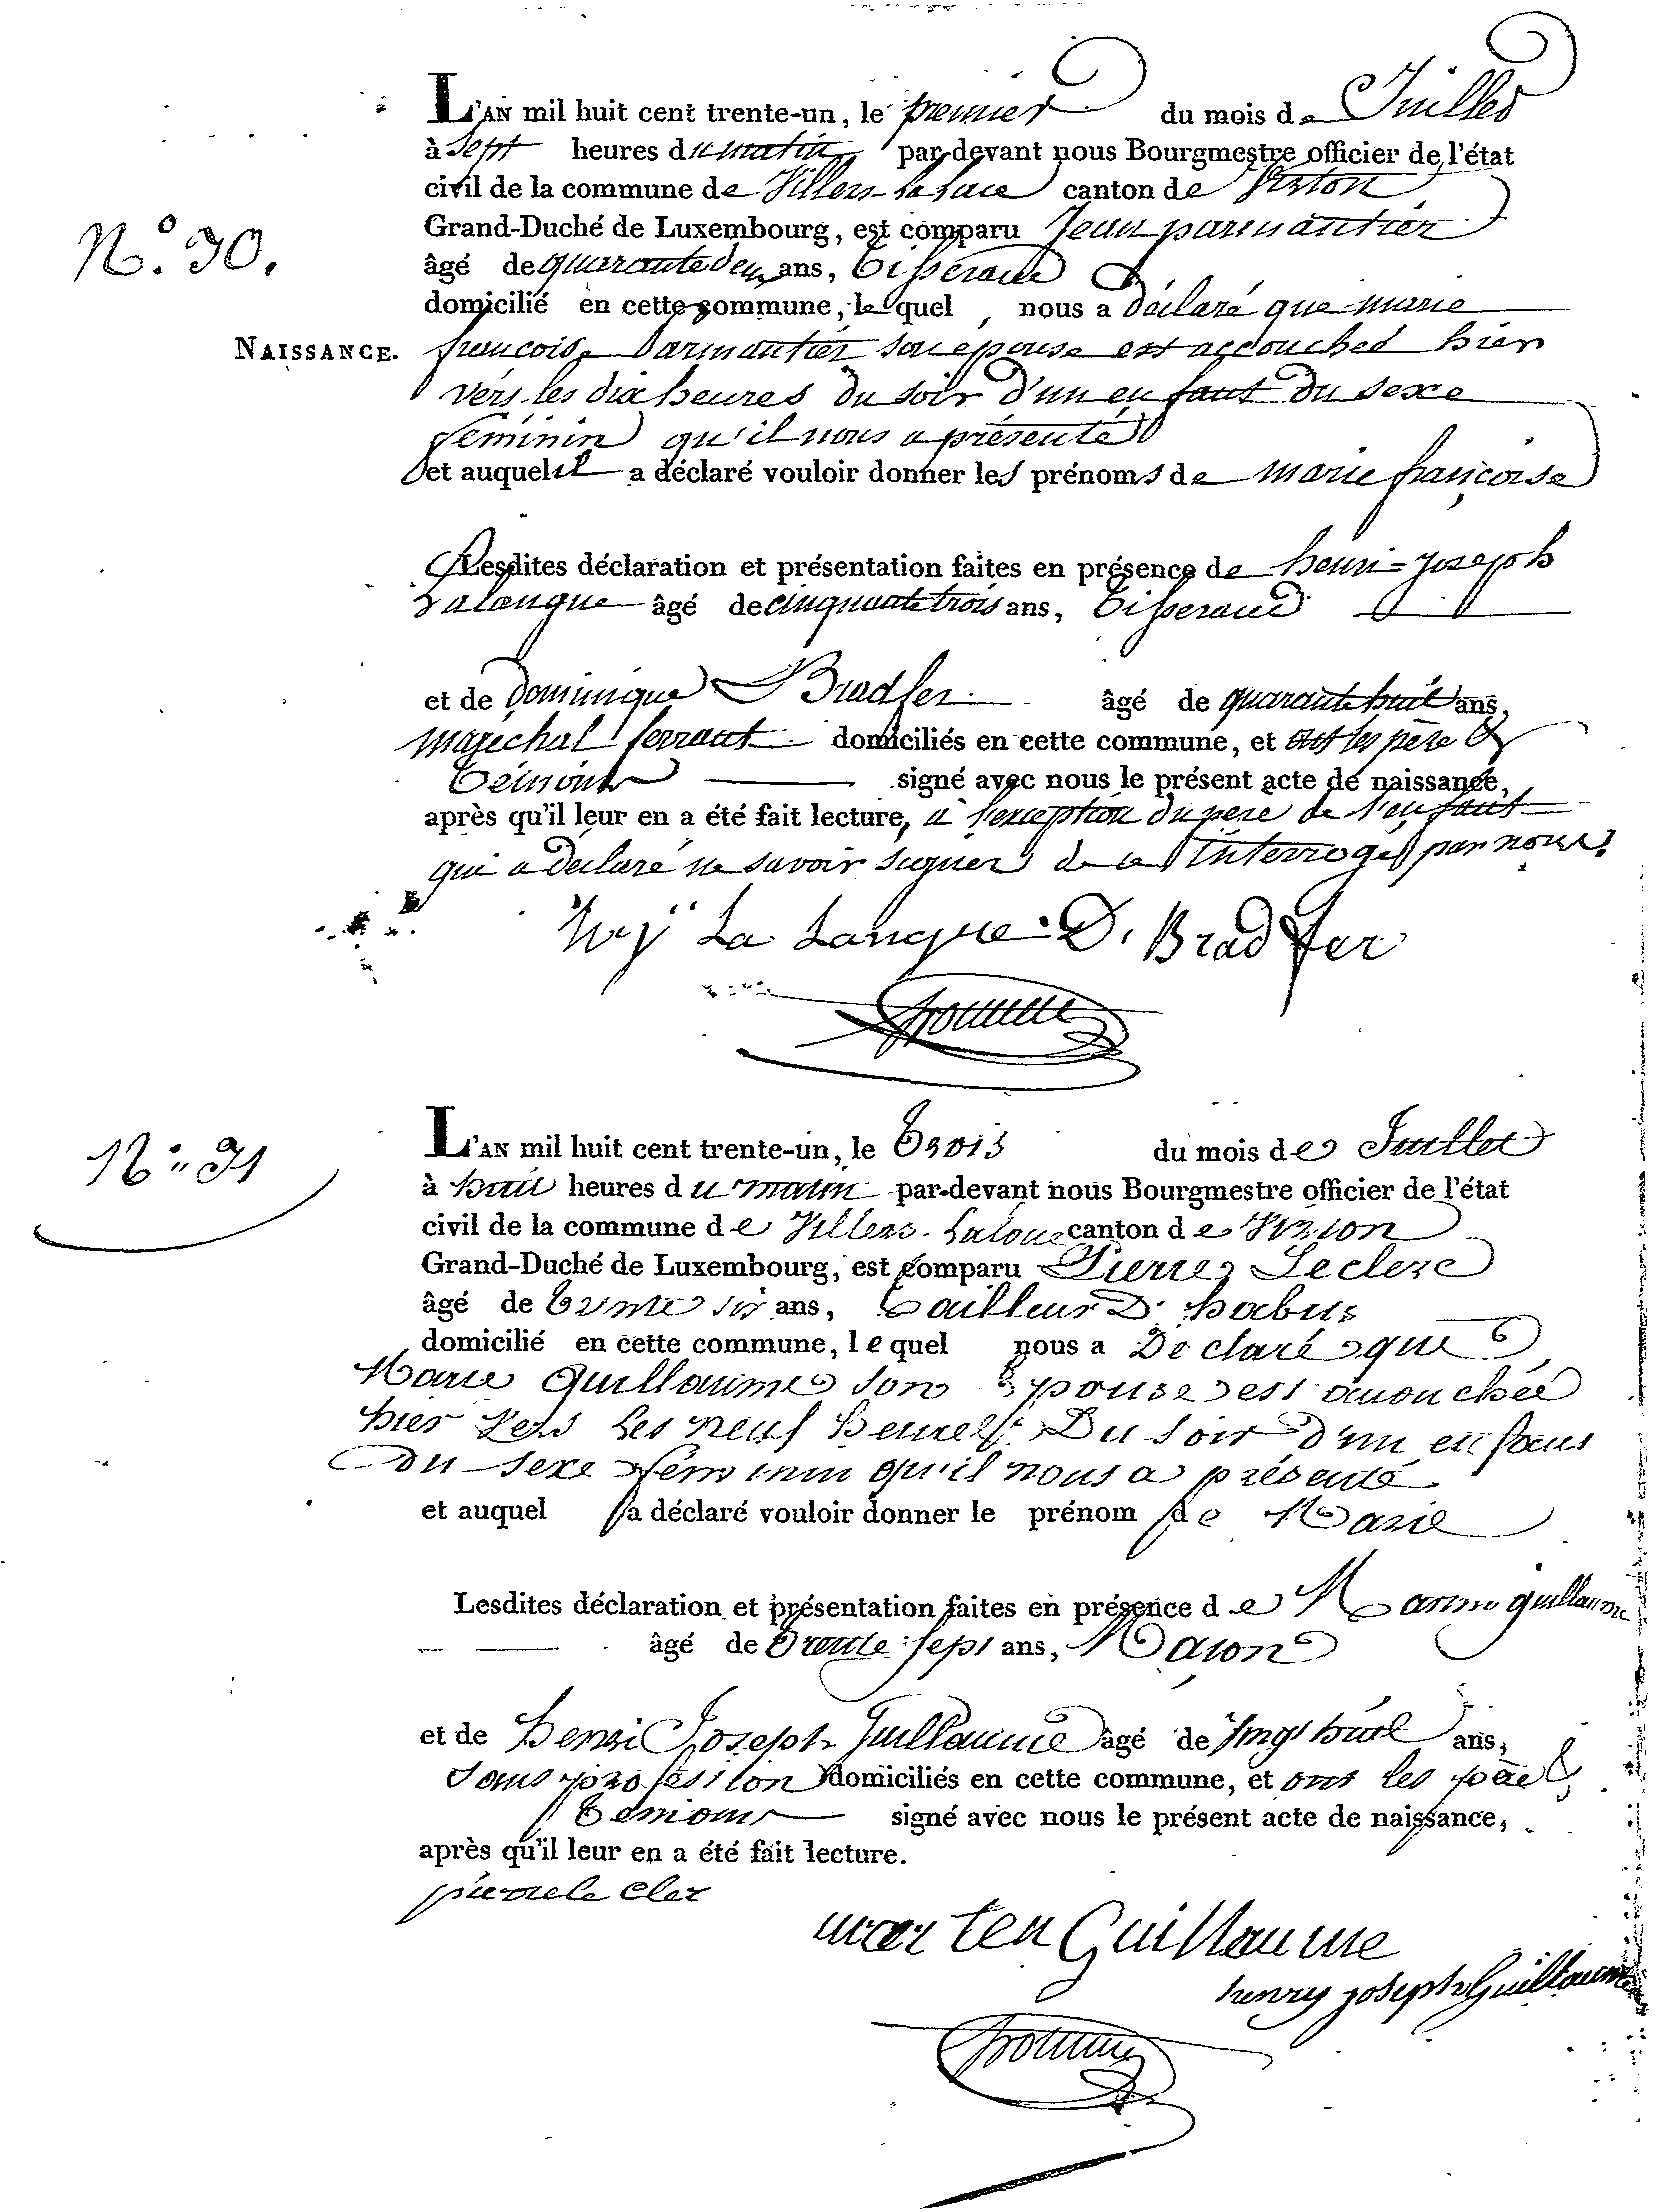 L'AN mil huit cent trente-un, le premier du mois de Juillet
à Sept heures du matin par-devant nous Bourgmestre officier de l'état
civil de la commune de Villers la loue canton de Virton
Grand-Duché de Luxembourg, est comparu Jean parmantier
N.° 30.
âgé de quarante deux ans, Tisserand
domicilié en cette commune, lequel nous a déclaré que marie
NAISSANCE.
françoise Parmantier son epouse est accouched hier
vers les dix heures du soir d'un enfant du sexe
féminin qu'il nous a présenté
et auquel il a déclaré vouloir donner les prénoms de marie françoise
Lesdites déclaration et présentation faites en présence de henri-joseph
Lalangue âgé de cinquante trois ans, Tisserand
et de Dominique Bradfer âgé de quarante huit ans,
maréchal ferrant domiciliés en cette commune, et ont les père &
témoins signé avec nous le présent acte de naissance,
après qu'il leur en a été fait lecture, à l'exception du pere de l'enfant
qui a déclaré ne savoir signer de ce interrogé par nous.
hrj La Langue D. Bradfer
N° 31
L'AN mil huit cent trente-un, le Trois du mois de Juillet
à huit heures du matin par-devant nous Bourgmestre officier de l'état
civil de la commune de Villers-Laloue canton de Virton
Grand-Duché de Luxembourg, est comparu Pierre Leclerc
âgé de trente six ans, tailleur D'habits
domicilié en cette commune, lequel nous a Declaré que
Marie Guillaume son Epouse est acouchée
hier vers les neuf heures Du soir d'un enfans
du sexe féminin qu'il nous a présenté
et auquel a déclaré vouloir donner le prénom de Marie
Lesdites déclaration et présentation faites en présence de Martin guillaume
âgé de Trente sept ans, Maçon
et de Henri Joseph Guillaume âgé de vingt huit ans,
sans profession domiciliés en cette commune, et ont les père &
Temoins signé avec nous le présent acte de naissance,
après qu'il leur en a été fait lecture.
pierre le cler
marten Guillaume
henry joseph Guillaume